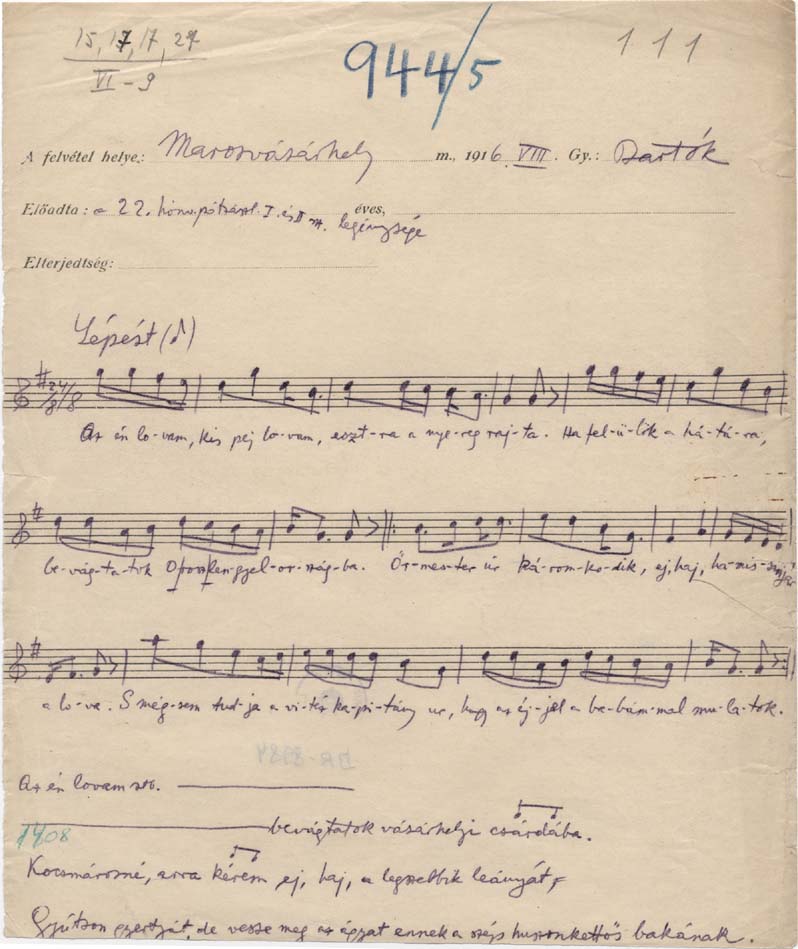 15, 17, 17, 27
VI – 9
944/5
111
A felvétel helye: Marosvásárhely m., 1916. VIII. Gy.: Bartók
Előadta: a 22. honv. pótzászl. I. és II. legénysége éves,
Elterjedtség:
Lépést (♪)
24/8 /8
Az én lo-vam, kis pej lo-vam, eszt-ra a nye-reg raj-ta. Ha fel-ü-lök a há-tá-ra,
be-vág-ta-tok Oroszlen-gyel-or-szág-ba. Őr-mes-ter úr ká-rom-ko-dik, ej, haj, ha-mis-
a lo-va. S még-sem tud-ja a vi-téz ka-pi-tány ur, hogy az éj-jel a ba-bám-mal mu-la-tok.
BR-8984
Az én lovam stb.
1408 bevágtatok vásárhelyi csárdába.
Kocsmárosné, arra kérem ej, haj, a legszebbik leányát,
Gyútson gyertyát, de vesse meg az ágyat ennek a szép huszonkettős bakának.